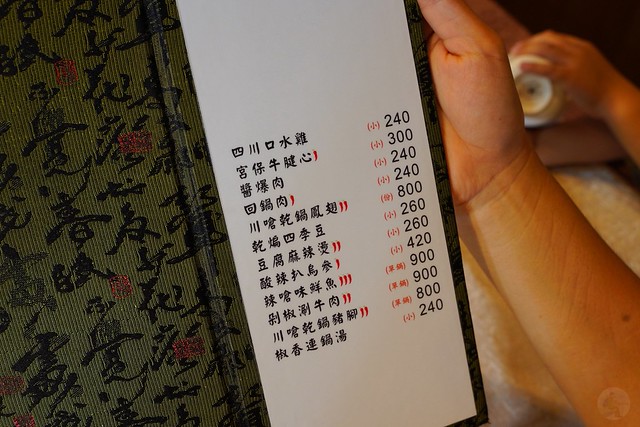 四川口水雞 (小) 240
宮保牛腱心 (小) 300
醬爆肉 (小) 240
回鍋肉 (小) 240
川嗆乾鍋鳳翅 (份) 800
乾煸四季豆 (小) 260
豆腐麻辣燙 (小) 260
酸辣扒烏參 (小) 420
辣嗆味鮮魚 (單鍋) 900
剁椒涮牛肉 (單鍋) 900
川嗆乾鍋豬腳 (單鍋) 800
椒香連鍋湯 (小) 240